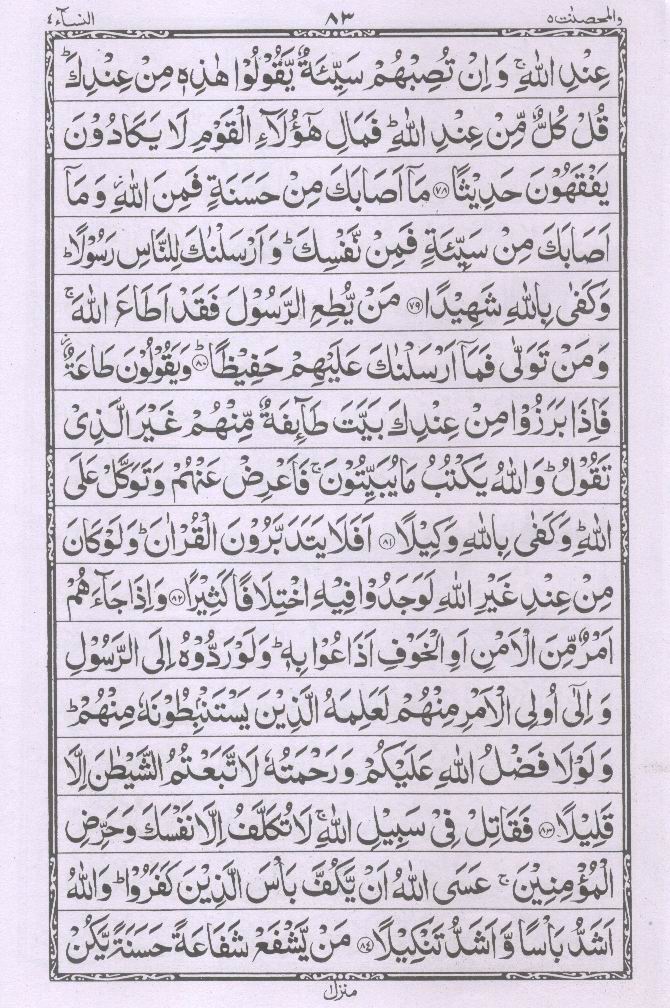 والمحصنٰت ٥ ٨٣ النسآء ٤
عِنْدِ اللّٰهِ ۚ وَ اِنْ تُصِبْهُمْ سَيِّئَةٌ يَّقُوْلُوْا هٰذِهٖ مِنْ عِنْدِكَ ؕ
قُلْ كُلٌّ مِّنْ عِنْدِ اللّٰهِ ؕ فَمَالِ هٰۤؤُلَآءِ الْقَوْمِ لَا يَكَادُوْنَ
يَفْقَهُوْنَ حَدِيْثًا ﴿٧٨﴾ مَاۤ اَصَابَكَ مِنْ حَسَنَةٍ فَمِنَ اللّٰهِ ؗ وَ مَاۤ
اَصَابَكَ مِنْ سَيِّئَةٍ فَمِنْ نَّفْسِكَ ؕ وَ اَرْسَلْنٰكَ لِلنَّاسِ رَسُوْلًا ؕ
وَ كَفٰى بِاللّٰهِ شَهِيْدًا ﴿٧٩﴾ مَنْ يُّطِعِ الرَّسُوْلَ فَقَدْ اَطَاعَ اللّٰهَ ۚ
وَ مَنْ تَوَلّٰى فَمَاۤ اَرْسَلْنٰكَ عَلَيْهِمْ حَفِيْظًا ؕ ﴿٨٠﴾ وَ يَقُوْلُوْنَ طَاعَةٌ ؗ
فَاِذَا بَرَزُوْا مِنْ عِنْدِكَ بَيَّتَ طَآئِفَةٌ مِّنْهُمْ غَيْرَ الَّذِىْ
تَقُوْلُ ؕ وَ اللّٰهُ يَكْتُبُ مَا يُبَيِّتُوْنَ ۚ فَاَعْرِضْ عَنْهُمْ وَ تَوَكَّلْ عَلَى
اللّٰهِ ؕ وَ كَفٰى بِاللّٰهِ وَكِيْلًا ﴿٨١﴾ اَفَلَا يَتَدَبَّرُوْنَ الْقُرْاٰنَ ؕ وَ لَوْ كَانَ
مِنْ عِنْدِ غَيْرِ اللّٰهِ لَوَجَدُوْا فِيْهِ اخْتِلَافًا كَثِيْرًا ﴿٨٢﴾ وَ اِذَا جَآءَهُمْ
اَمْرٌ مِّنَ الْاَمْنِ اَوِ الْخَوْفِ اَذَاعُوْا بِهٖ ؕ وَ لَوْ رَدُّوْهُ اِلَى الرَّسُوْلِ
وَ اِلٰۤى اُولِى الْاَمْرِ مِنْهُمْ لَعَلِمَهُ الَّذِيْنَ يَسْتَنْۢبِطُوْنَهٗ مِنْهُمْ ؕ
وَ لَوْلَا فَضْلُ اللّٰهِ عَلَيْكُمْ وَ رَحْمَتُهٗ لَاتَّبَعْتُمُ الشَّيْطٰنَ اِلَّا
قَلِيْلًا ﴿٨٣﴾ فَقَاتِلْ فِىْ سَبِيْلِ اللّٰهِ ۚ لَا تُكَلَّفُ اِلَّا نَفْسَكَ وَ حَرِّضِ
الْمُؤْمِنِيْنَ ۚ عَسَى اللّٰهُ اَنْ يَّكُفَّ بَاْسَ الَّذِيْنَ كَفَرُوْا ؕ وَ اللّٰهُ
اَشَدُّ بَاْسًا وَّ اَشَدُّ تَنْكِيْلًا ﴿٨٤﴾ مَنْ يَّشْفَعْ شَفَاعَةً حَسَنَةً يَّكُنْ
منزل ١